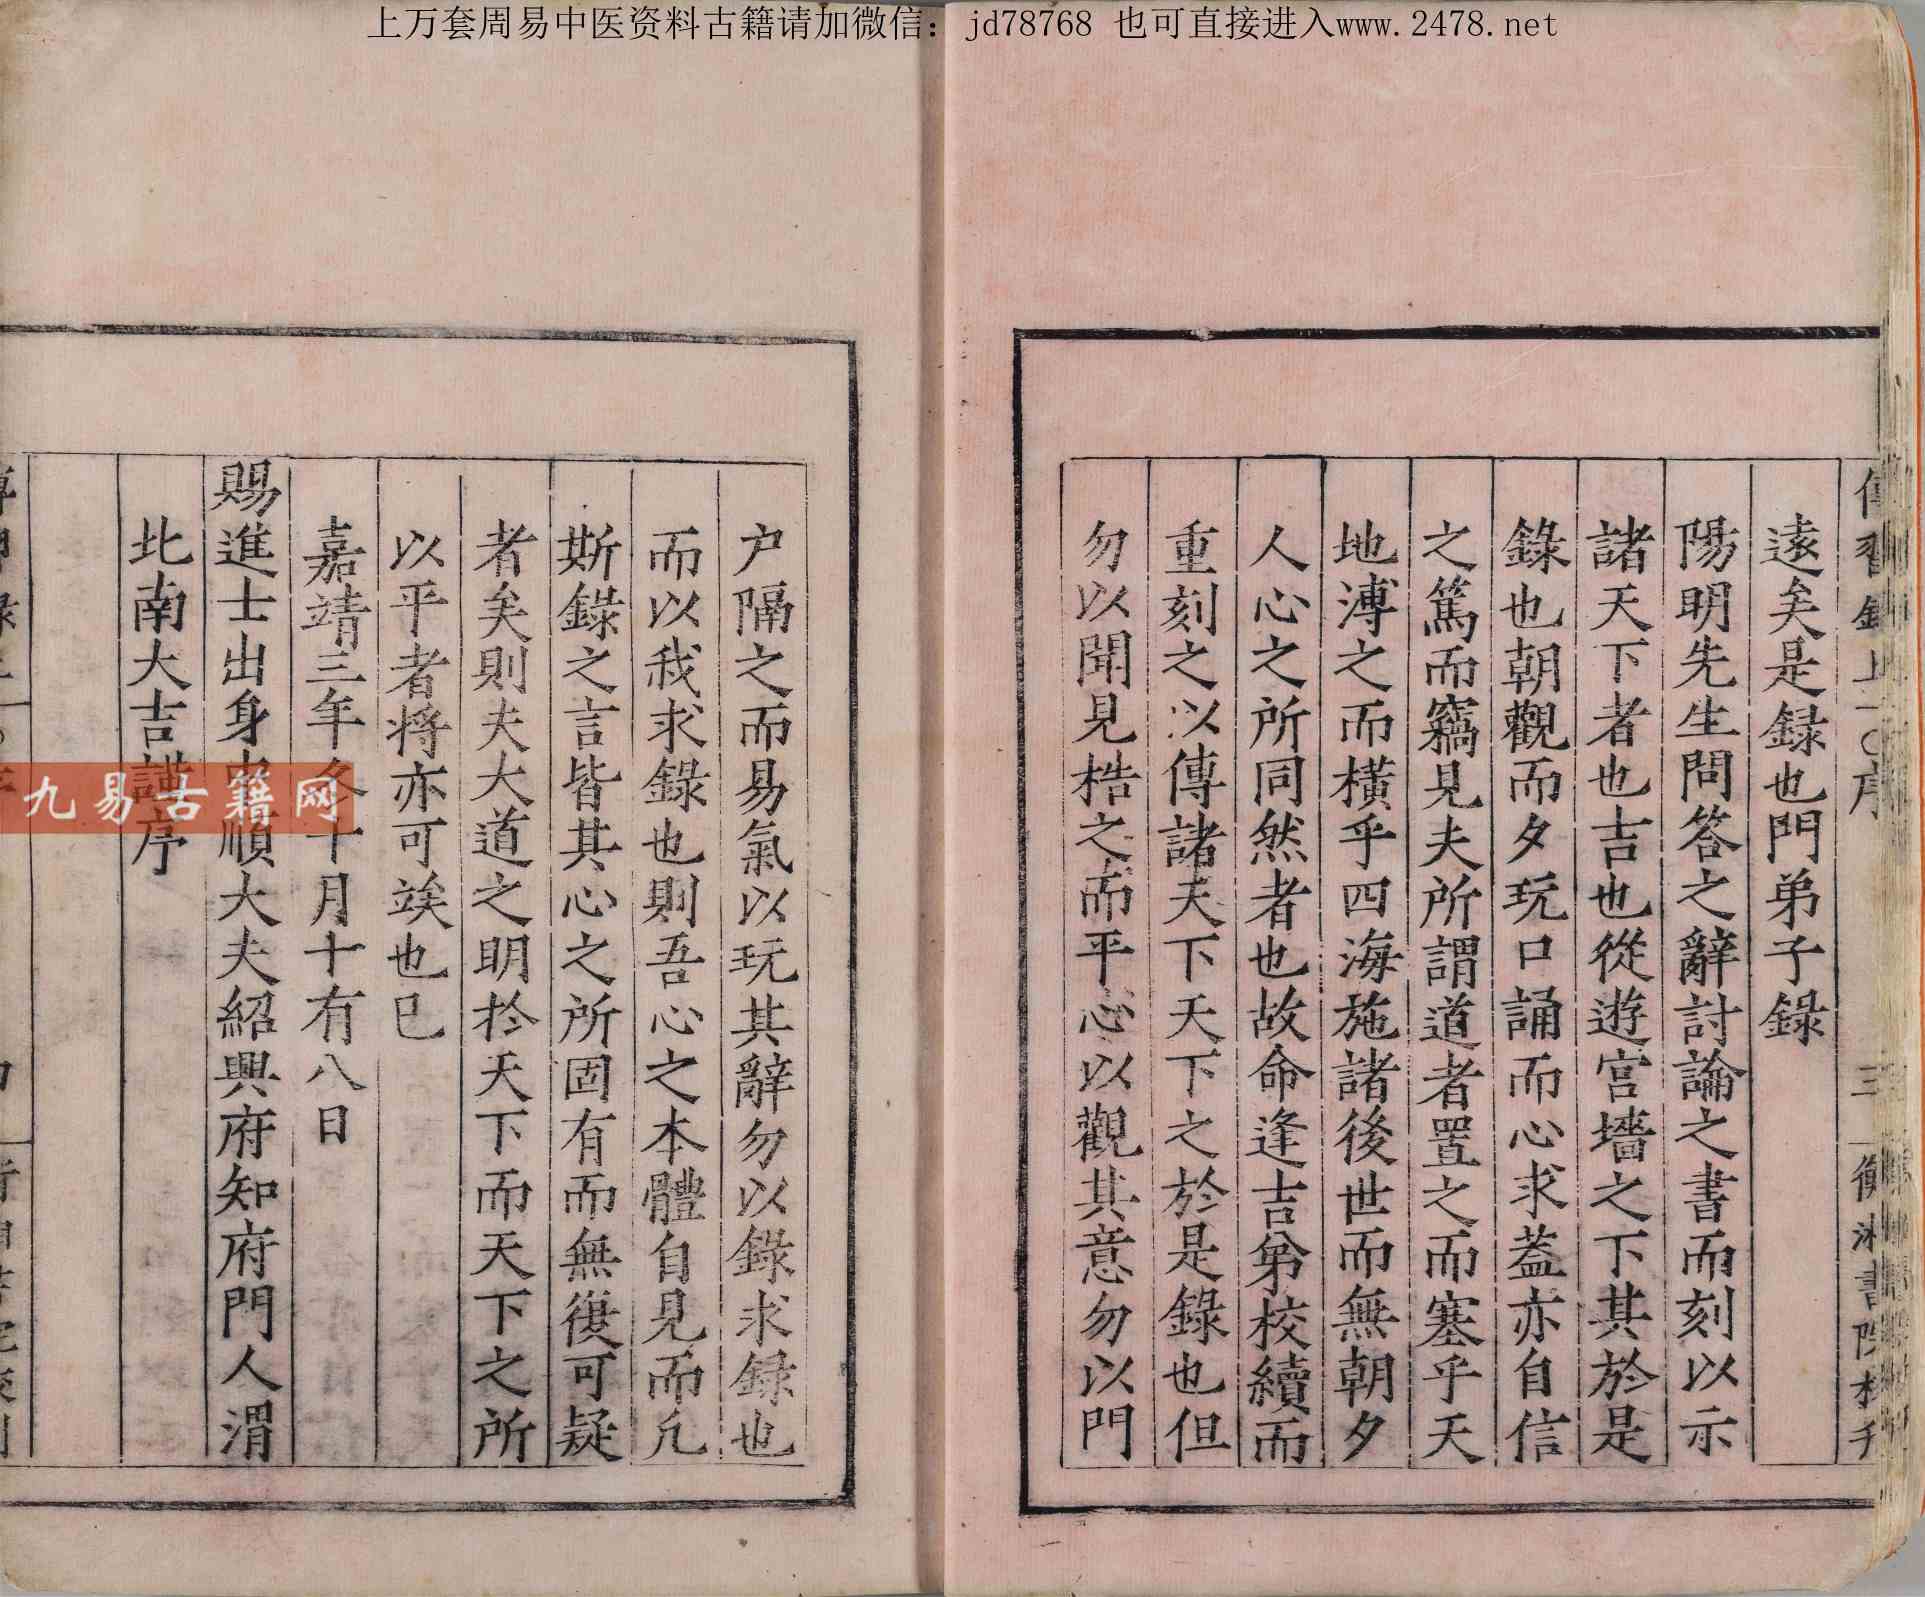 上万套周易中医资料古籍请加微信：jd78768 也可直接进入www.2478.net
傳習錄上 〇序 三 衡湘書院校刊
遠矣是録也門弟子錄
陽明先生問答之辭討論之書而刻以示
諸天下者也吉也從遊宮墻之下其於是
錄也朝觀而夕玩口誦而心求蓋亦自信
之篤而竊見夫所謂道者置之而塞乎天
地溥之而橫乎四海施諸後世而無朝夕
人心之所同然者也故命逢吉弟校續而
重刻之以傳諸天下天下之於是錄也但
勿以聞見梏之而平心以觀其意勿以門
户隔之而易氣以玩其辭勿以錄求録也
而以我求錄也則吾心之本體自見而凡
斯錄之言皆其心之所固有而無復可疑
者矣則夫大道之明於天下而天下之所
以平者將亦可竢也已
嘉靖三年冬十月十有八日
賜進士出身中順大夫紹興府知府門人渭
北南大吉謹序
九易古籍网